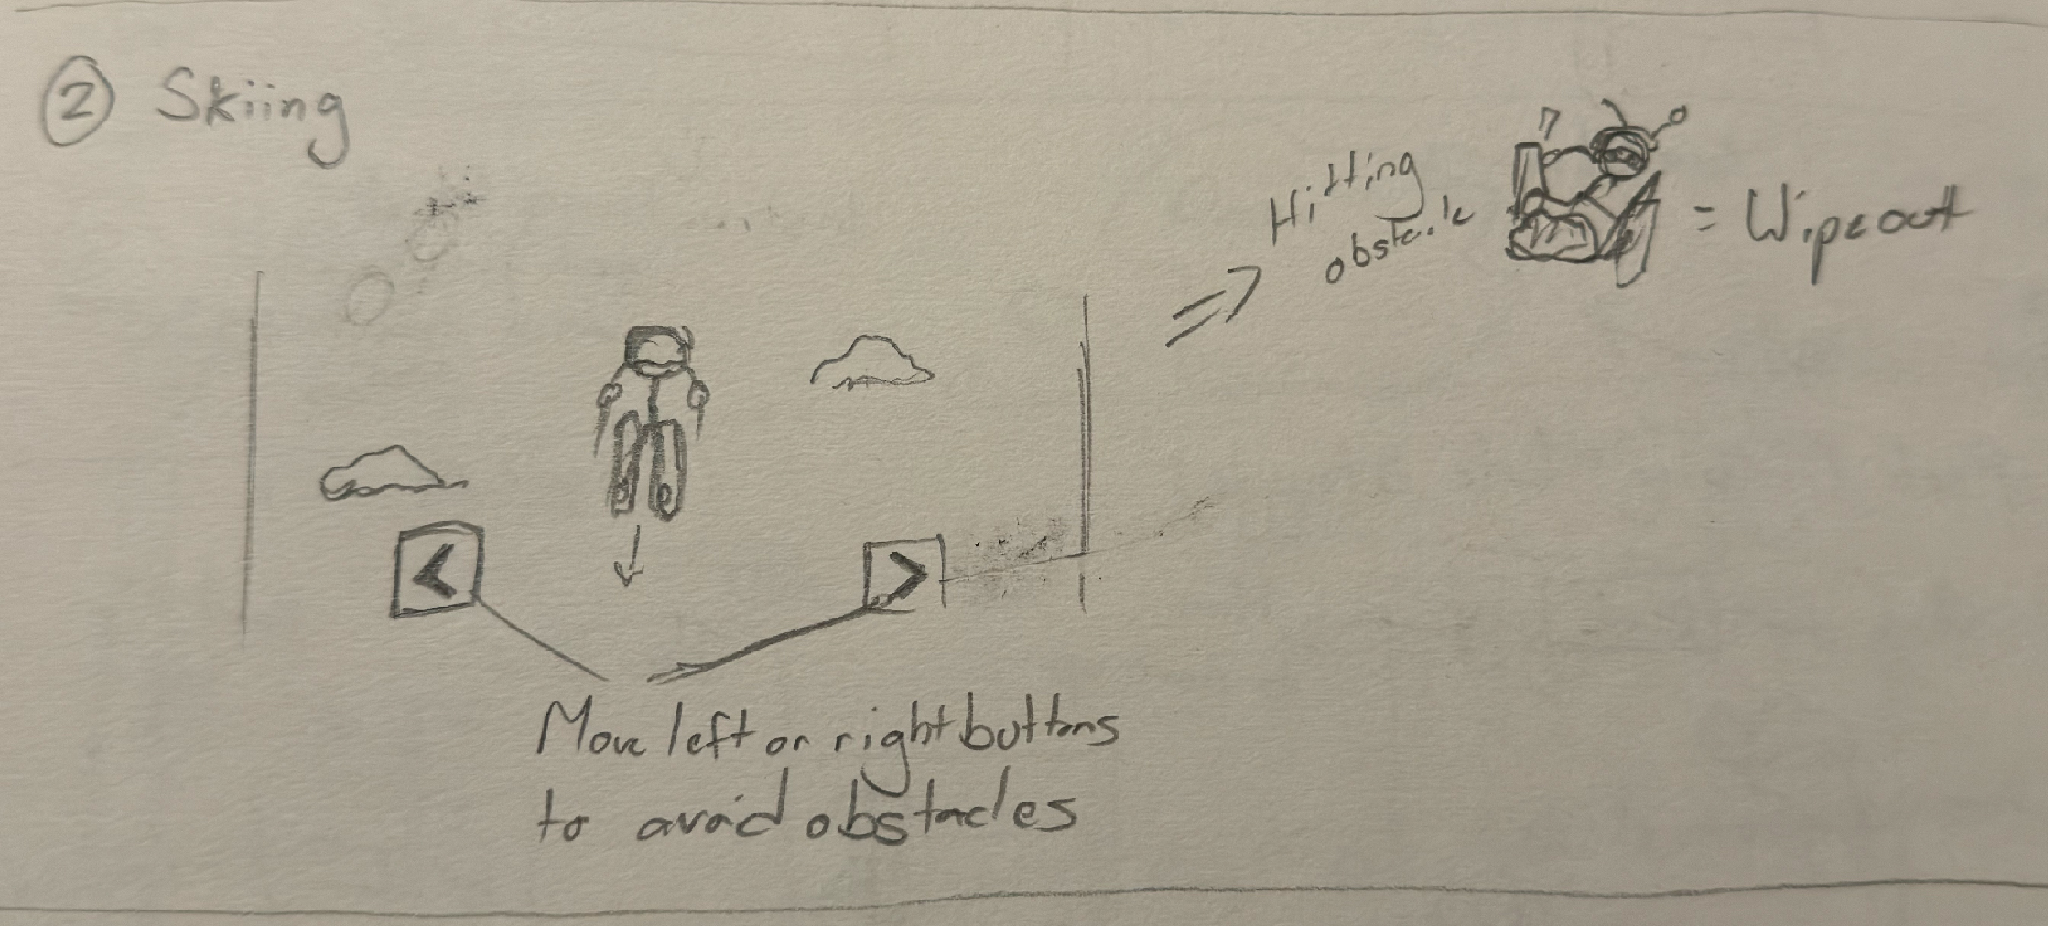 ② Skiing
Hitting
obstacle
= Wipeout
<
>
Move left or right buttons
to avoid obstacles